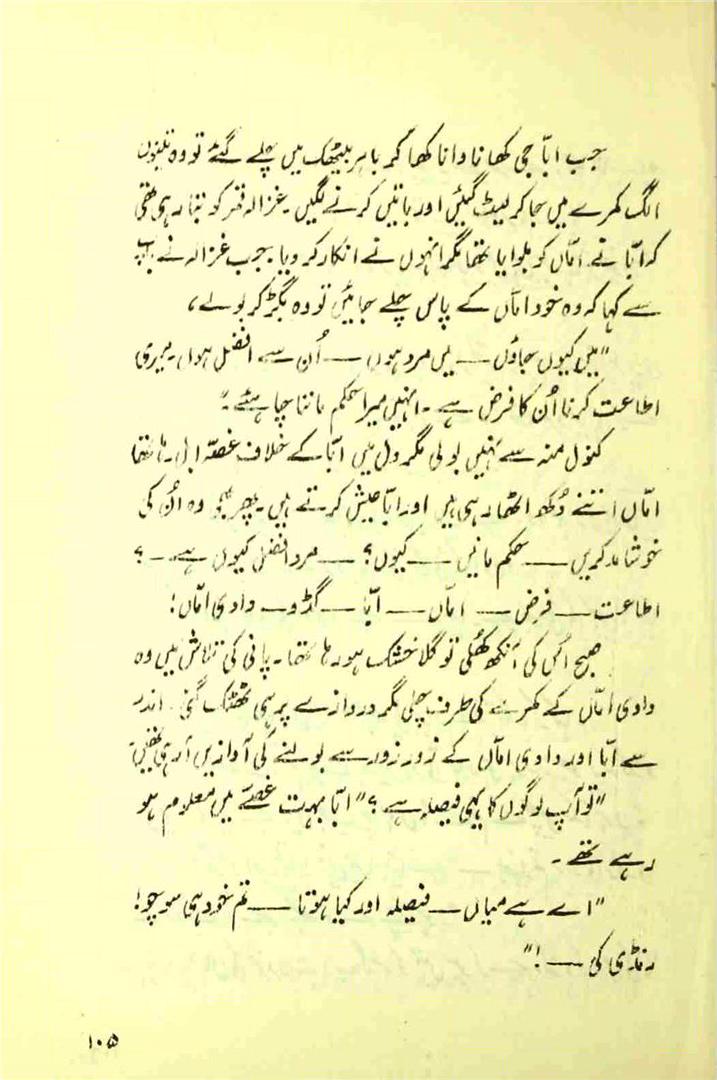 جب ابّا جی کھانا وانا کھا کر باہر بیٹھک میں چلے گئے تو وہ تینوں
الگ کمرے میں جا کر لیٹ گئیں اور باتیں کرنے لگیں۔ غزالہ قمر کو بتا رہی تھی
کہ ابّا نے امّاں کو بلوایا تھا مگر انہوں نے انکار کر دیا۔ جب غزالہ نے باپ
سے کہا کہ وہ خود امّاں کے پاس چلے جائیں تو وہ بگڑ کر بولے،
"میں کیوں جاؤں — میں مرد ہوں — اُن سے افضل ہوں۔ میری
اطاعت کرنا اُن کا فرض ہے۔ انہیں میرا حکم ماننا چاہئے۔"
کنول منہ سے نہیں بولی مگر دل میں ابّا کے خلاف غصّہ ابل رہا تھا
امّاں اتنے دُکھ اٹھا رہی ہیں اور ابّا عیش کرتے ہیں۔ پھر بھی وہ اُن کی
خوشامد کریں — حکم مانیں — کیوں؟ — مرد افضل کیوں ہے — ؟
اطاعت — فرض — امّاں — ابّا — گڈو — دادی امّاں!
صبح اُس کی آنکھ کھُلی تو گلا خشک ہو رہا تھا۔ پانی کی تلاش میں وہ
دادی امّاں کے کمرے کی طرف چلی مگر دروازے پر ہی ٹھٹک گئی۔ اندر
سے ابّا اور دادی امّاں کے زور زور سے بولنے کی آوازیں آ رہی تھیں۔
"تو آپ لوگوں کا یہی فیصلہ ہے؟" ابّا بہت غصّے میں معلوم ہو
رہے تھے۔
"اے ہے میاں — فیصلہ اور کیا ہوتا — تم خود ہی سوچو!
رنڈی کی — !"
۱۰۵